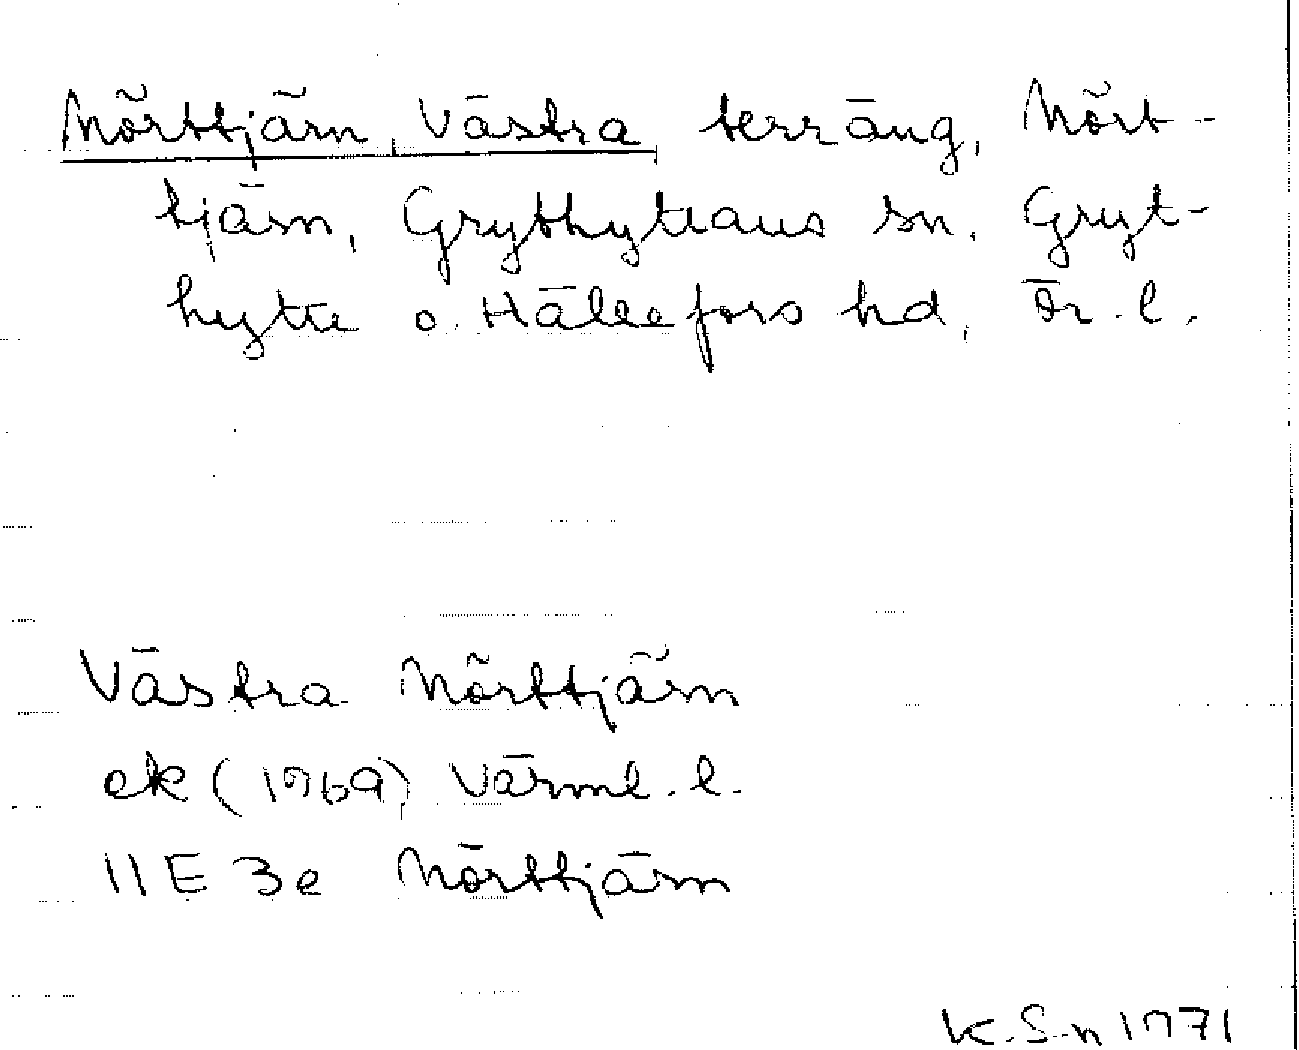 Mörttjärn, Västra terräng, Mört-
tjärn, Grythyttans sn, Gryt-
hytte o. Hällefors hd, Ör. l.
Västra Mörttjärn
ek (1969) Värml. l.
11E 3e Mörttjärn
K. S-n 1971